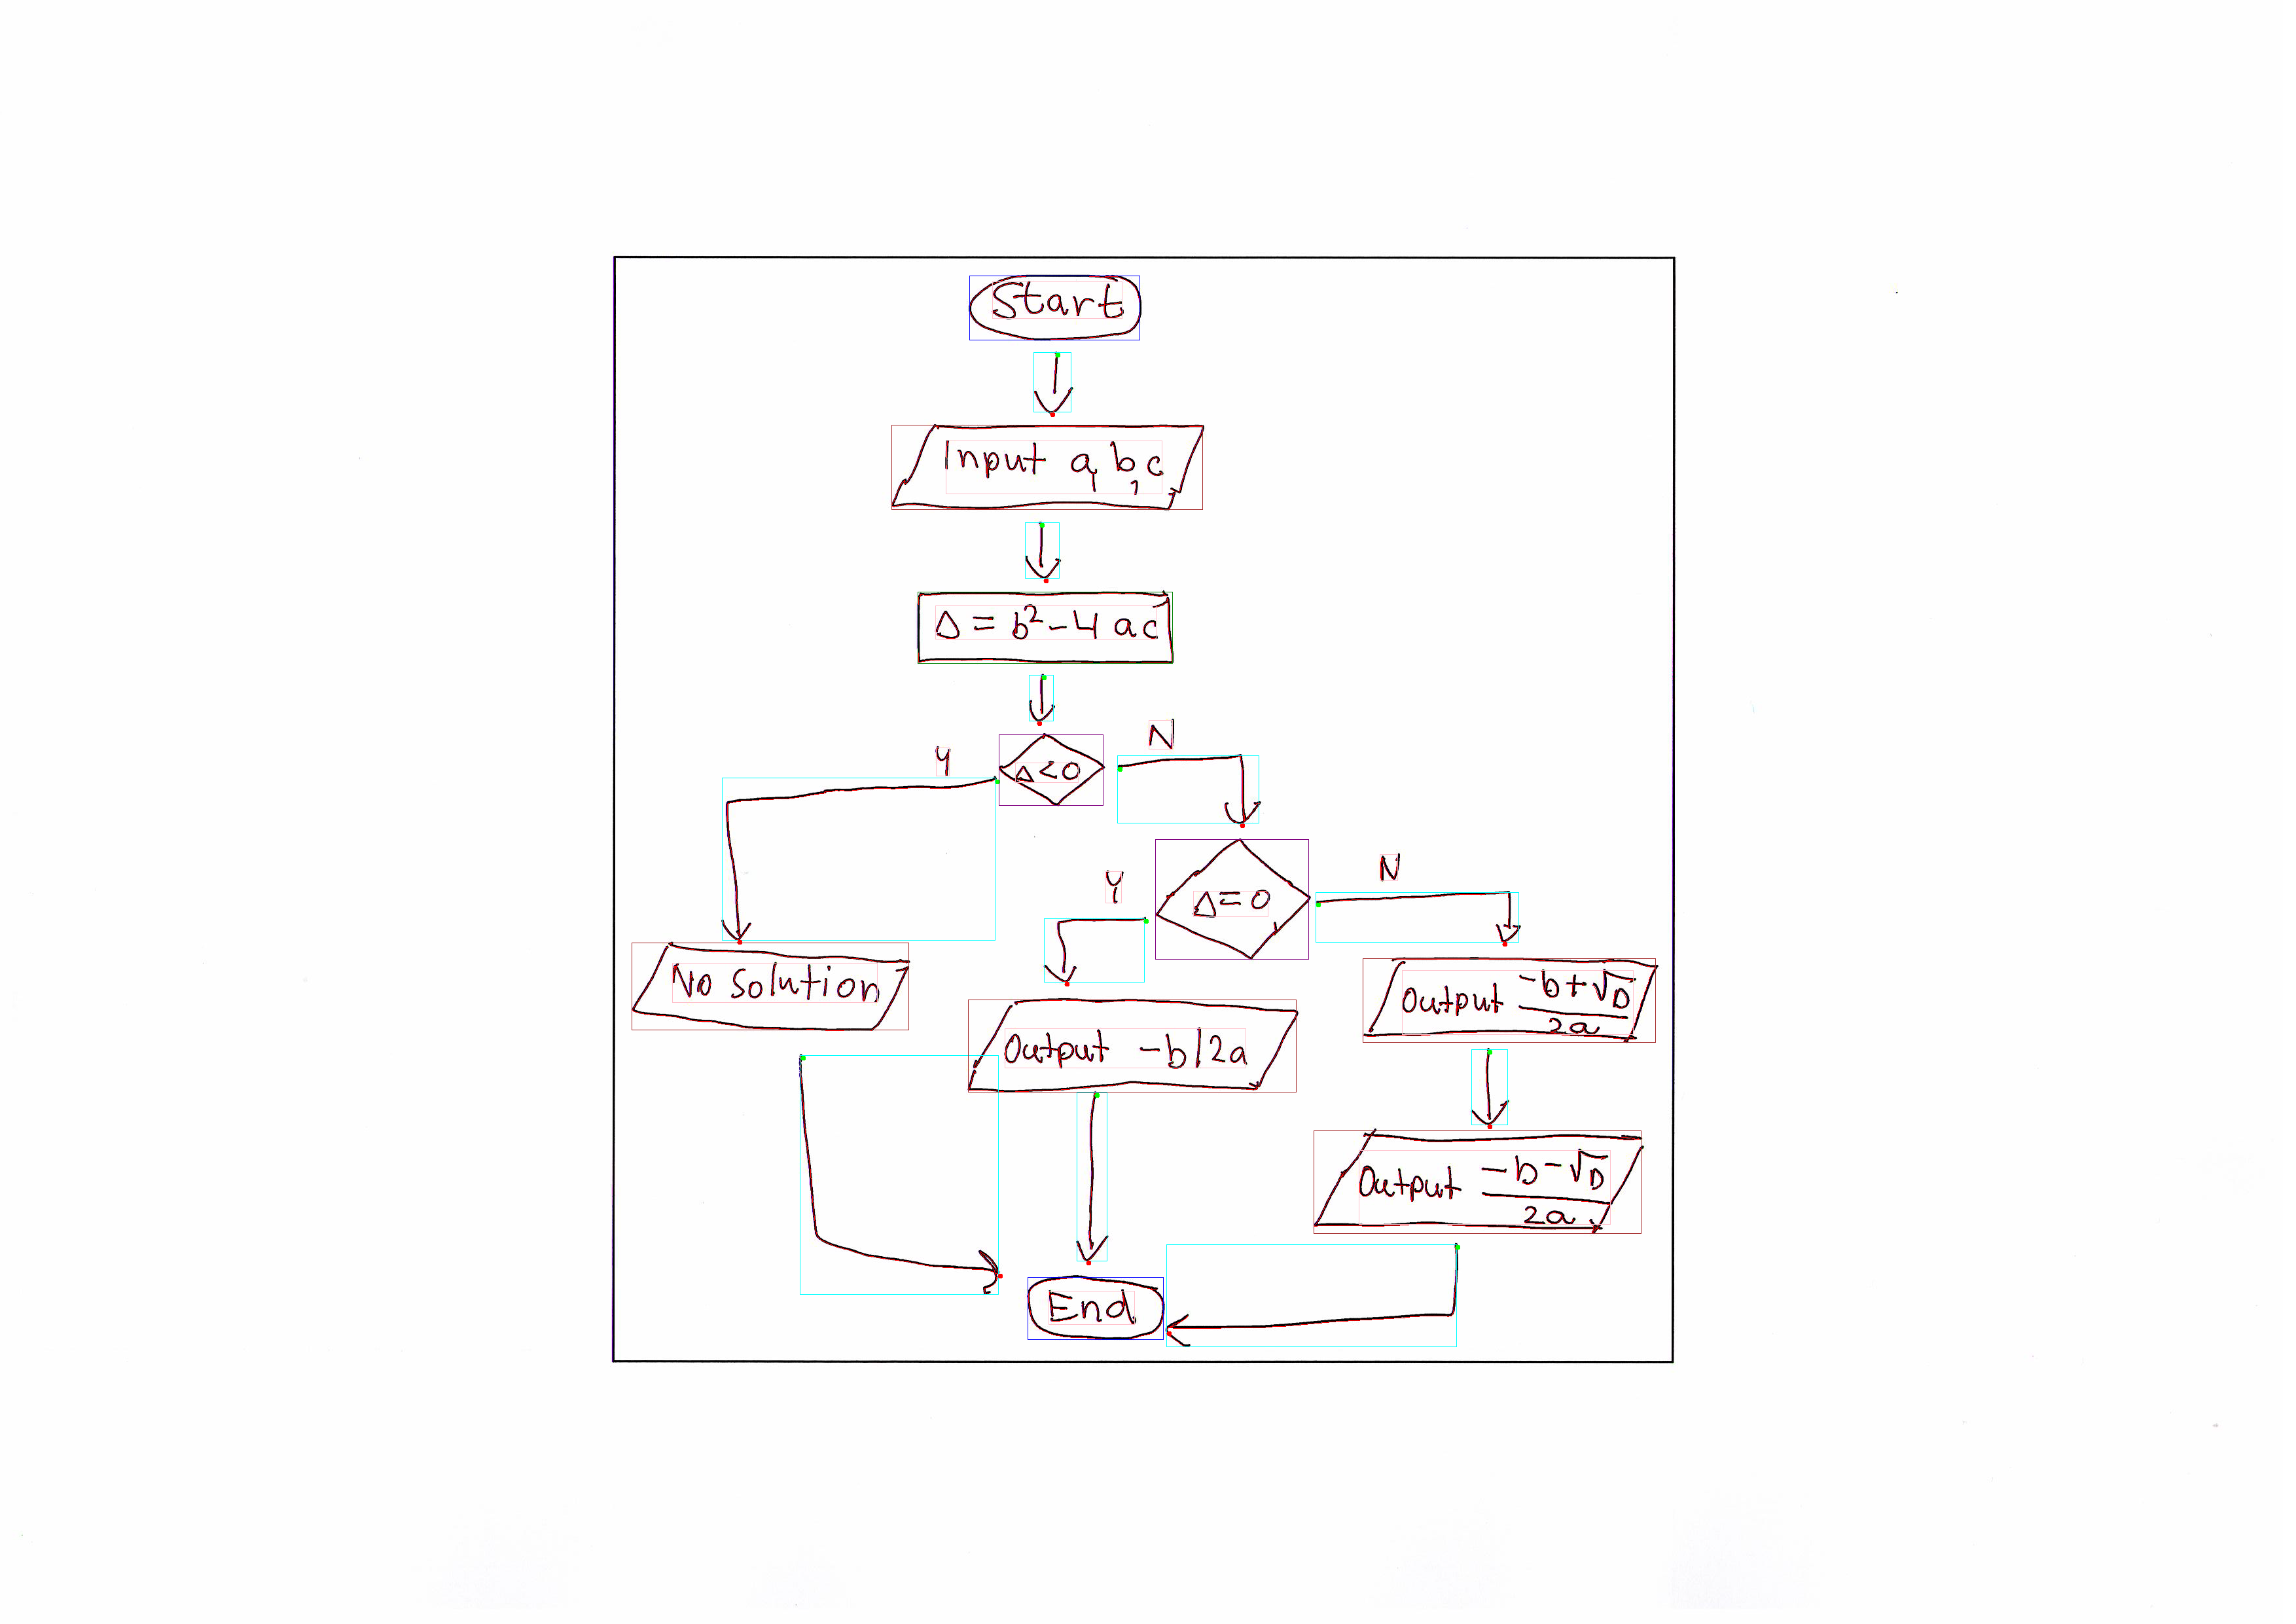 Start
Input a, b, c
Δ = b²-4 ac
Y
N
Δ<0
Y
N
Δ=0
No Solution
Output -b+√D / 2a
Output -b/2a
Output -b-√D / 2a
End